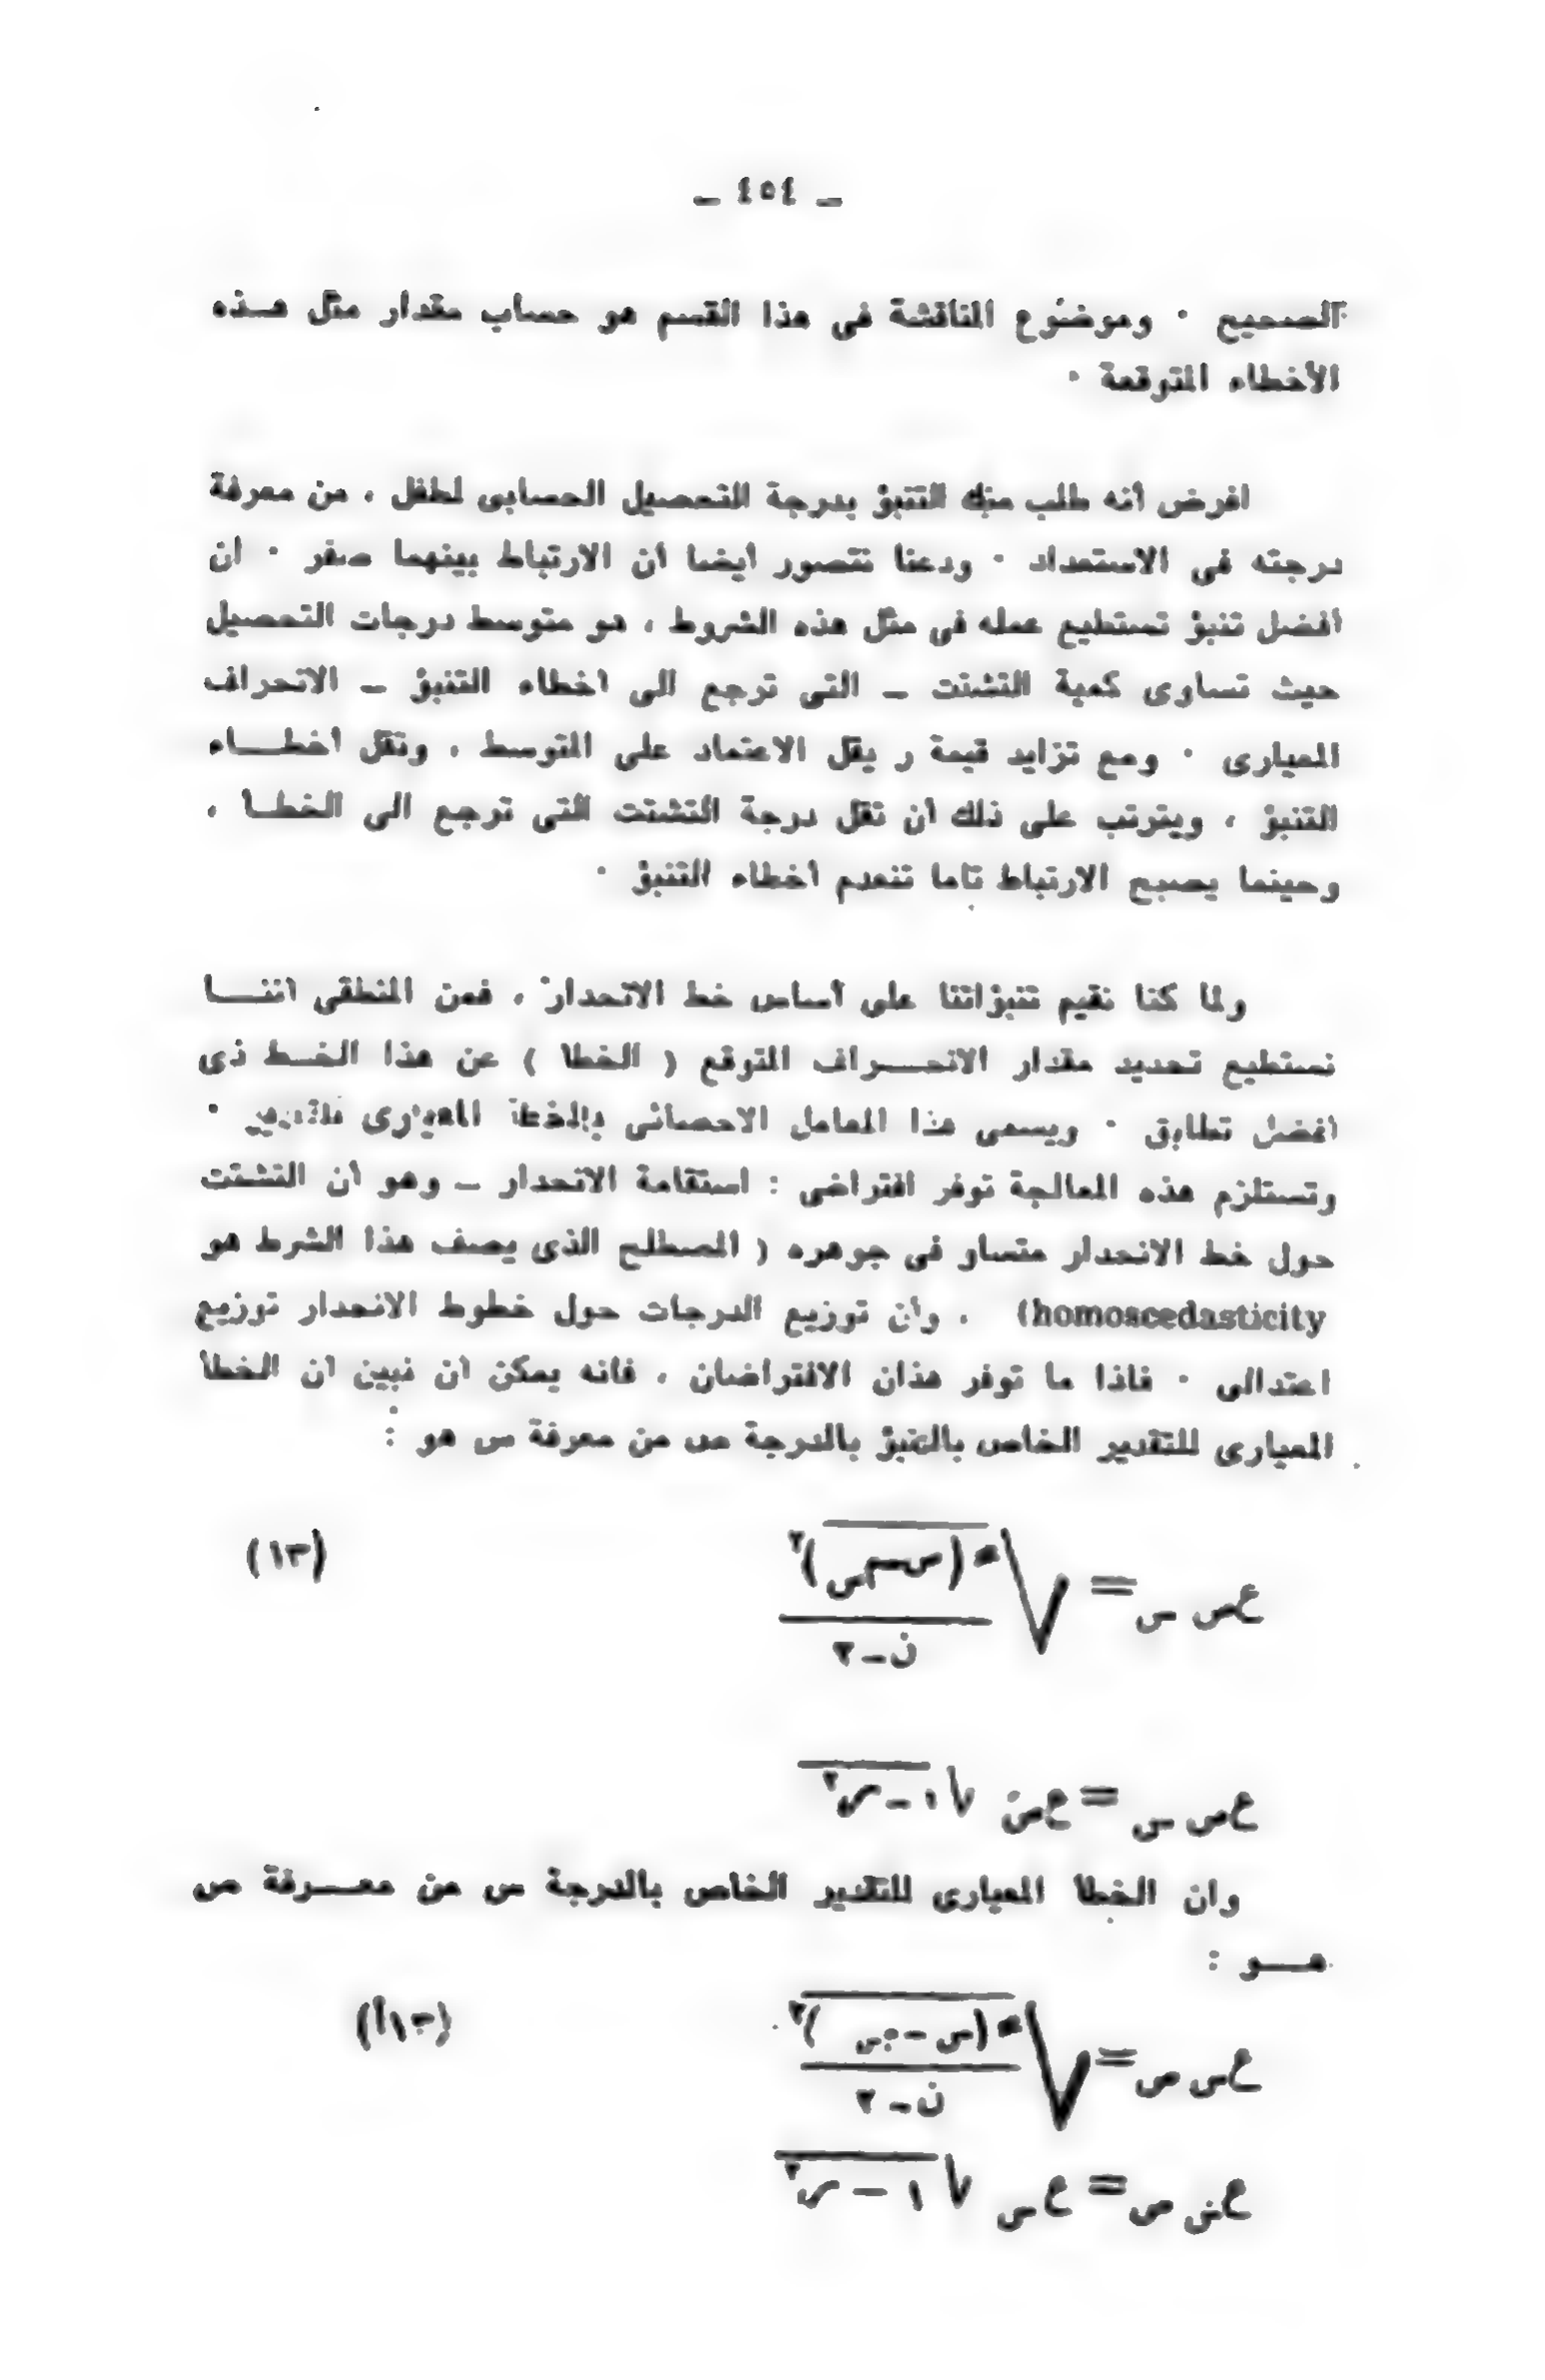 ــ ٤٥٤ ــ
الصحيح · وموضوع المناقشة فى هذا القسم هو حساب مقدار مثل هــذه
الأخطاء المتوقعة ·
افرض أنه طلب منك التنبؤ بدرجة التحصيل الحسابى لطفل ، من معرفة
درجته فى الاستعداد · ودعنا نتصور أيضا أن الارتباط بينهما صفر · ان
أفضل تنبؤ تستطيع عمله فى مثل هذه الشروط ، هو متوسط درجات التحصيل
حيث تساوى كمية التشتت ــ التى ترجع الى أخطاء التنبؤ ــ الانحراف
المعيارى · ومع تزايد قيمة ر يقل الاعتماد على المتوسط ، وتقل أخطــاء
التنبؤ ، ويترتب على ذلك أن تقل درجة التشتت التى ترجع الى الخطــأ ،
وحينما يصبح الارتباط تاما تنعدم أخطاء التنبؤ ·
ولما كنا نقيم تنبؤاتنا على أساس خط الانحدار ، فمن المنطقى أننــا
نستطيع تحديد مقدار الانحــراف المتوقع ( الخطأ ) عن هذا الخــط ذى
أفضل تطابق · ويسمى هذا المعامل الاحصائى بالخطأ المعيارى للتقدير ·
وتستلزم هذه المعالجة توفر افتراضى : استقامة الانحدار ــ وهو أن التشتت
حول خط الانحدار متساو فى جوهره ( المصطلح الذى يصف هذا الشرط هو
homoscedasticity) ، وأن توزيع الدرجات حول خطوط الانحدار توزيع
اعتدالى · فاذا ما توفر هذان الافتراضان ، فانه يمكن أن نبين أن الخطأ
المعيارى للتقدير الخاص بالتنبؤ بالدرجة ص من معرفة س هو :
ع ص س = √ (ص − ص)٢ (١٣)
ن − ٢
ع ص س = ع ص √ ١ − ر٢
وان الخطأ المعيارى للتقدير الخاص بالدرجة س من معــرفة ص
هــو :
ع س ص = √ (س − س)٢ (١٣أ)
ن − ٢
ع س ص = ع س √ ١ − ر٢